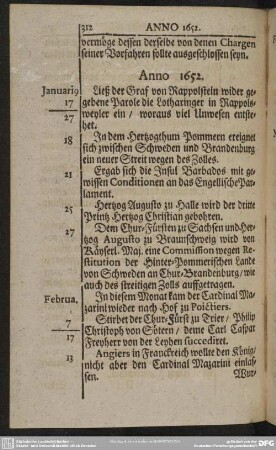 312 ANNO 1651.
vermöge dessen derselbe von denen Chargen
seiner Vorfahren sollte ausgeschlossen seyn.
Anno 1652.
Januari9 Ließ der Graf von Rappolstein wider ge-
17 gebene Parole die Lotharinger in Rappols-
27 weyler ein / woraus viel Unwesen entste-
het.
18 In dem Hertzogthum Pommern ereignet
sich zwischen Schweden und Brandenburg
ein neuer Streit wegen des Zolles.
21 Ergab sich die Insul Barbados mit ge-
wissen Conditionen an das Engellische Par-
lament.
25 Hertzog Augusto zu Halle wird der dritte
Printz Hertzog Christian gebohren.
27 Dem Chur-Fürsten zu Sachsen und Her-
tzog Augusto zu Braunschweig wird von
Käyserl. Maj. eine Commission wegen Re-
stitution der Hinter-Pommerischen Lande
von Schweden an Chur-Brandenburg / wie
auch des streitigen Zolls auffgetragen.
Februa. In diesem Monat kam der Cardinal Ma-
zarini wieder nach Hof zu Poictiers.
7 Stirbet der Chur-Fürst zu Trier / Philip
17 Christoph von Sötern / deme Carl Caspar
Freyherr von der Leyhen succediret.
13 Angiers in Franckreich wollte den König /
nicht aber den Cardinal Mazarini einlas-
sen.
Wur-